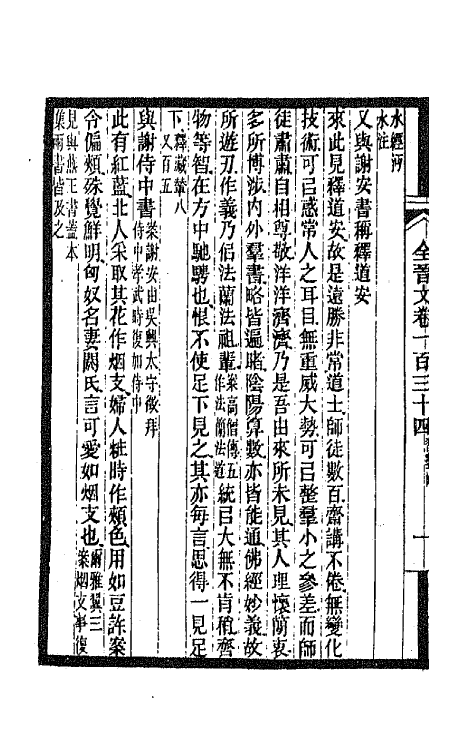 水經河
水注
又與謝安書稱釋道安
來此見釋道安故是遠勝非常道士師徒數百齋講不倦無變化
技術可㠯惑常人之耳目無重威大勢可㠯整羣小之參差而師
徒肅肅自相尊敬洋洋濟濟乃是吾由來所未見其人理懷簡衷
多所博涉內外羣書略皆遍睹陰陽算數亦皆能通佛經妙義故
所遊刃作義乃佀法蘭法祖輩案高僧傳五作法蘭法道統㠯大無不肯稍齊
物等智在方中馳騁也恨不使足下見之其亦每言思得一見足
下釋藏輦八又百五
與謝侍中書案謝安由吳興太守徵拜侍中孝武時復加侍中
此有紅藍北人采取其花作烟支婦人粧時作頰色用如豆許案
令偏頰殊覺鮮明匈奴名妻閼氏言可愛如烟支也爾雅翼三案烟支事復
見與燕王書蓋本
集兩書皆及之
全晉文卷一百三十四